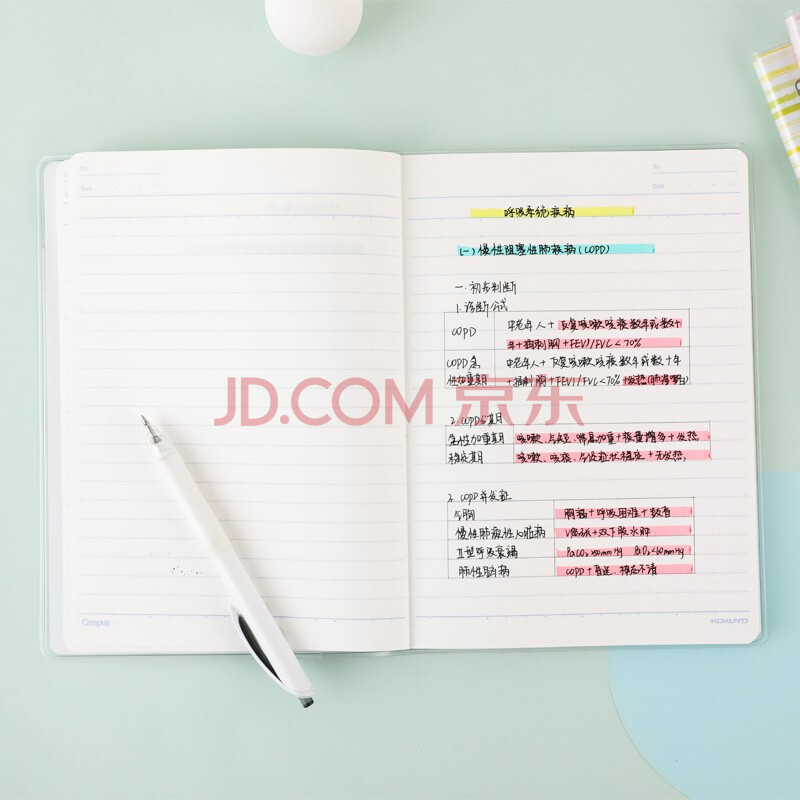 No.
Date
No.
Date
呼吸系统疾病
(一)慢性阻塞性肺疾病(COPD)
一.初步判断
1.诊断公式
COPD 中老年人+反复咳嗽咳痰数年或数十
年+桶状胸+FEV1/FVC<70%
COPD急 中老年人+反复咳嗽咳痰数年或数十年
性加重期 +桶状胸+FEV1/FVC<70%+发热
JD.COM 京东
2.COPD分期
急性加重期 咳嗽、气短、喘息加重+痰量增多+发热
稳定期 咳嗽、咳痰、气短症状稳定+无发热
3.COPD并发症
气胸 胸痛+呼吸困难+
慢性肺源性心脏病 +双下肢水肿
II型呼吸衰竭 PaCO₂>50mmHg PaO₂<60mmHg
肺性脑病 COPD+ 神志不清
Campus
KOKUYO